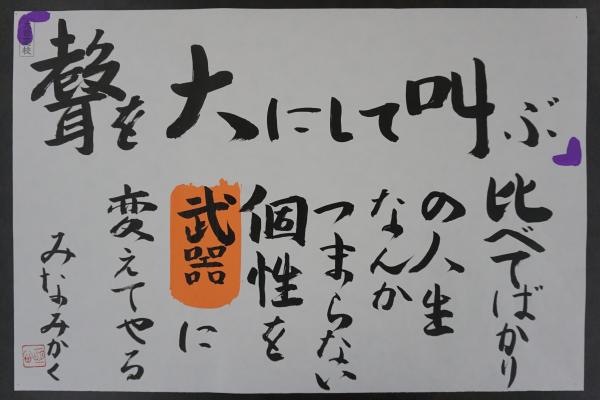 聲を大にして叫ぶ
比べてばかり
の人生
なんか
つまらない
個性を
武器に
変えてやる
みなみかく